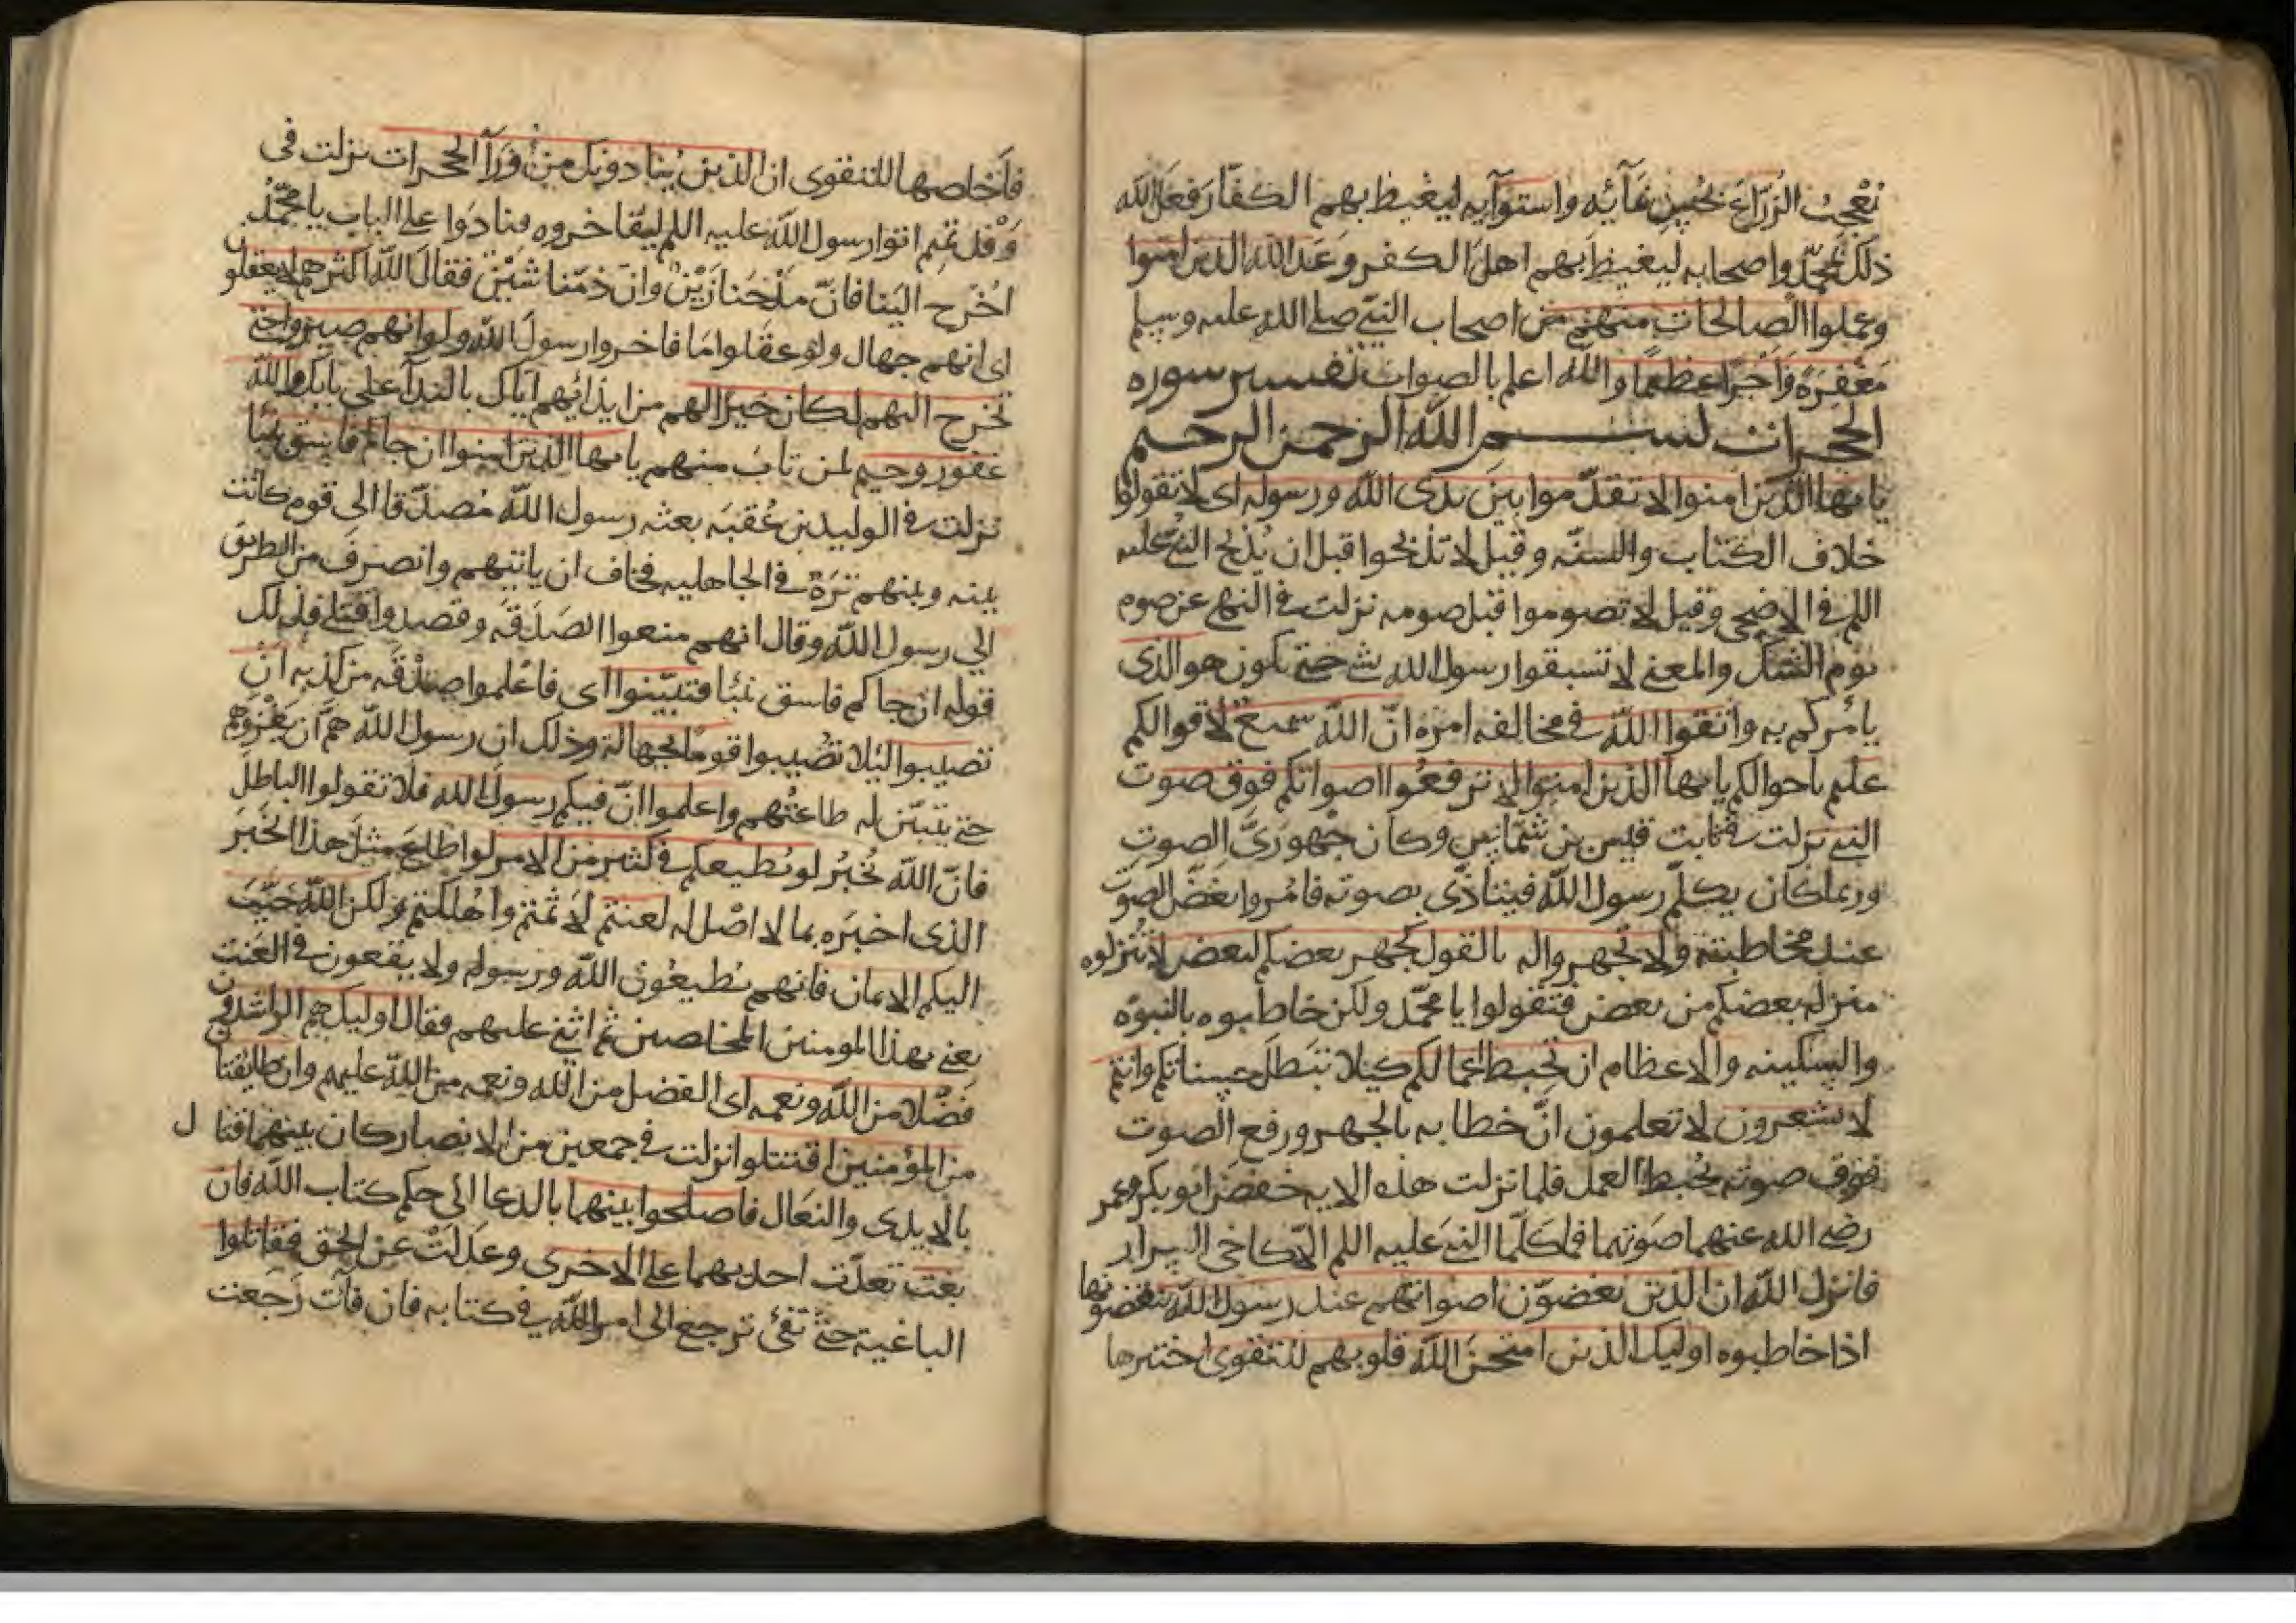 يعجب الزُرّاع بحُسن نمآئه واستوآيه ليغيظ بهم الكفّار فعَل الله
ذلك بمحمّد واصحابه ليغيظ بهم اهل الكفر وعَد الله الذين امنوا
وعملوا الصالحات منهم من اصحاب النبي صلى الله عليه وسلم
مغفرةً واجرًا عظيمًا والله اعلم بالصواب تفسير سوره
الحجرات بسم الله الرحمن الرحيم
يا ايها الذين امنوا لا تقدّموا بين يدى الله ورسوله اى لا تقولوا
خلاف الكتاب والسنّه وقيل لا تذبحوا قبل ان يذبح النبي عليه
اللم في الاضحى وقيل لا تصوموا قبل صومه نزلت في النهي عن صوم
يوم الشك والمعنى لا تسبقوا رسول الله بشى حتى يكون هو الذى
يأمركم به واتقوا الله في مخالفه امره انّ الله سميع لاقوالكم
عليم باحوالكم يا ايها الذين امنوا لا ترفعُوا اصواتكم فوق صوت
النبي نزلت في ثابت قيس بن شمّاس وكان جهورىّ الصوت
وربما كان يكلّم رسول الله فيتاذّى بصوته فامُروا بغضّ الصوت
عند مخاطبته ولا تجهروا له بالقول كجهر بعضكم لبعض لا تُنزلوه
منزله بعضكم من بعض فتقولوا يا محمّد ولكن خاطبوه بالنبوّه
والسكينه والاعظام ان تحبط اعمالكم كيلا تبطل حسناتكم وانتم
لا تشعرون لا تعلمون انّ خطابه بالجهر ورفع الصوت
فوق صوته يُحبط العمل فلما نزلت هذه الايه خفض ابو بكر وعمر
رضي الله عنهما صوتهما فما كلّما النبي عليه اللم الّا كاخى السرار
فانزل الله ان الذين يغضوّن اصواتهم عند رسول الله يخفضونها
اذا خاطبوه اوليك الذين امتحن الله قلوبهم للتقوى اختبرها
فاخلصها للتقوى ان الذين يُنادونك من ورآ الحجرات نزلت في
وفد تميم اتوا رسول الله عليه اللم ليفاخروه فنادوا على الباب يا محمّد
اُخرج الينا فانّ مدحنا زَيْن وانّ ذمّنا شَيْن فقال الله اكثرهم لا يعقلون
اى انهم جهال ولو عقلوا ما فاخروا رسول الله ولو انهم صبروا حتى
تخرج اليهم لكان خيرًا لهم من ايذائهم اياك بالندآ على بابك والله
غفور رحيم لمن تاب منهم يا ايها الذين امنوا ان جاكم فاسق بنبا
نزلت في الوليد بن عُقبَه بعثه رسول الله مُصدّقا الى قوم كانت
بينه وبينهم تِرَة في الجاهليه فخاف ان ياتيهم وانصرف من الطريق
الى رسول الله وقال انهم منعوا الصدقه وقصدوا قتلى فذلك
قوله ان جاكم فاسق بنبا فتبيّنوا اى فاعلموا صدقه من كذبه ان
تصيبوا لئلا تصُيبوا قومًا بجهالة وذلك ان رسول الله همّ ان يغزوهم
حتى يتبيّن له طاعتهم واعلموا انّ فيكم رسول الله فلا تقولوا الباطل
فانّ الله يُخبرُ لو يُطيعكم في كثير من الامر لو اطاع مثل هذا المخبر
الذى اخبره بما لا اصل له لعنتم لاثمتم واهلكتم ولكن الله حبّب
اليكم الايمان فانهم يُطيعُون الله ورسوله ولا يقعون في العنت
يعنى بهذا المومنين المخلصين ثم اثنى عليهم فقال اوليك هم الراشدون
فضلًا من الله ونعمه اى الفضل من الله ونعمه من الله عليهم وان طايفتا
من المؤمنين اقتتلوا نزلت في جمعين من الانصار كان بينهما قتال
بالايدى والنعال فاصلحوا بينهما بالدعا الى حكم كتاب الله فان
بغت تعدّت احديهما على الاخرى وعدلت عن الحق فقاتلوا
الباغية حتى تفئ ترجع الى امر الله في كتابه فان فآت رَجَعت